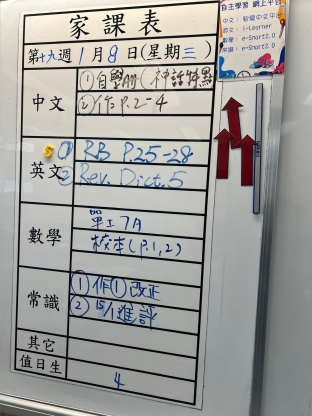 家課表
自主學習 網上平台
中文：智愛中文平台
英文：i-Learner
數學：e-Smart2.0
常識：e-Smart2.0
第十九週 1月8日(星期三)
中文
①自學冊(神話特點)
②作P.2-4
5
英文
① RB P.25-28
② Rev. Dict.5
數學
單工7A
校本(P.1,2)
常識
①作①改正
②15/1進評
其它
值日生
4